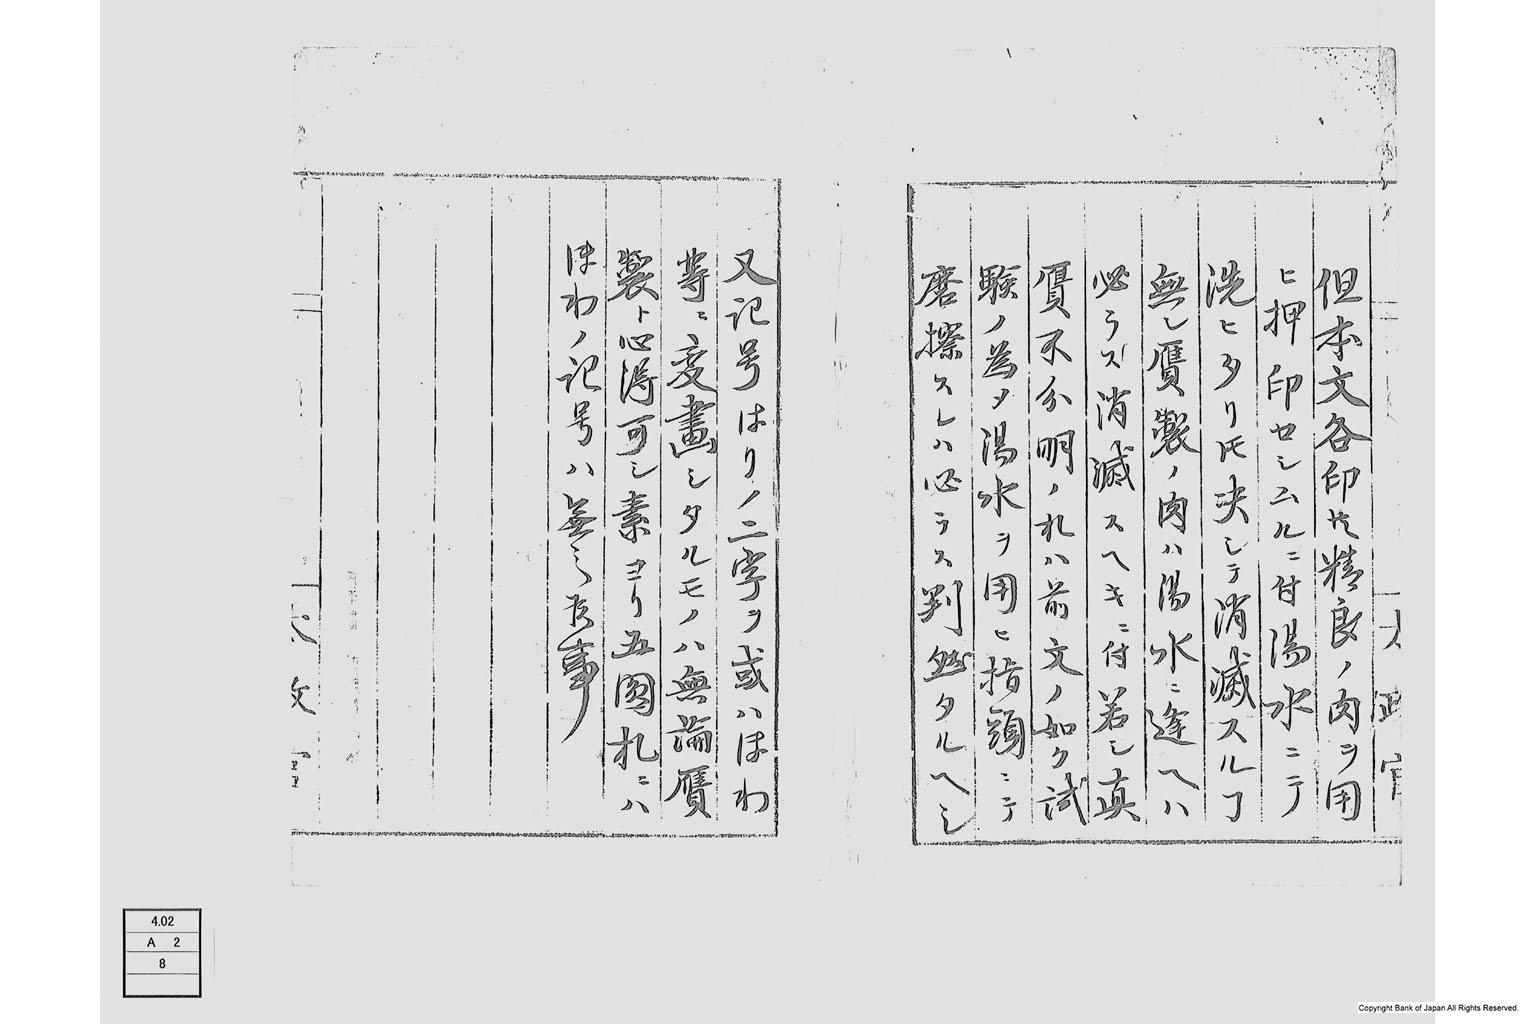 但本文各印共精良ノ肉ヲ用
ヒ押印セシムルニ付湯水ニテ
洗ヒタリ𪜈决シテ消滅スルヿ
無シ贋製ノ肉ハ湯水ニ逢ヘハ
必ラズ消滅スヘキニ付若シ真
贋不分明ノ札ハ前文ノ如ク試
験ノ為メ湯水ヲ用ヒ指頭ニテ
磨擦スレハ必ラス判然タルヘシ
太政官
又記号はりノ二字ヲ或ハほわ
等ニ変畫シタルモノハ無論贋
製ト心得可シ素ヨリ五圓札ニハ
ほわノ記号ハ無之候事
4.02
A 2
8
Copyright Bank of Japan All Rights Reserved.